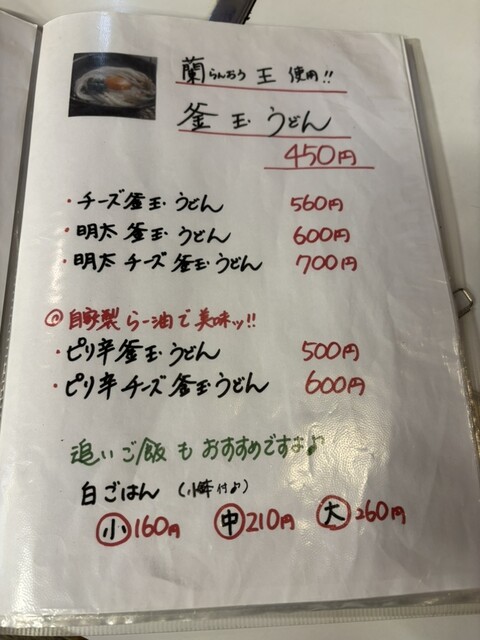 蘭らんおう王 使用!!
釜玉うどん
450円
・チーズ釜玉うどん 560円
・明太釜玉うどん 600円
・明太チーズ釜玉うどん 700円
◎自家製らー油で美味ッ!!
・ピリ辛釜玉うどん 500円
・ピリ辛チーズ釜玉うどん 600円
追いご飯もおすすめですよ♪
白ごはん (小鉢付♪)
小160円 中210円 大260円